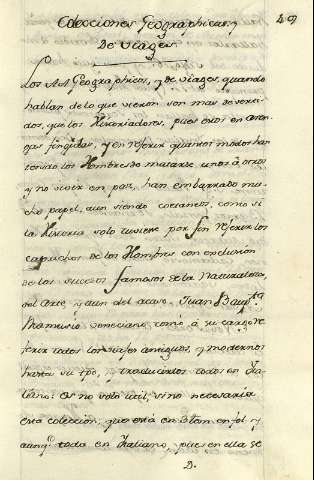 49
Colecciones Geographicas, y
De Viages.
Los AA Geographicos, y de Viages, quando
hablan de lo que vieron son mas
dos, que los Historiadores, pues estos en
gas fingidas, y en referir quantos modos han
tenido los Hombres de matarse unos à otros
y no vivir en paz, han embarrado mu-
cho papel, aun siendo coetaneos, como si
la Historia solo tuviese por fin referir los
caprichos de los Hombres con exclusion
de los sucesos famosos de la Naturaleza,
del Arte, y aun del acaso. Juan Bauptª
Rhamusio Veneciano, tomó à su cargo re-
ferir todos los viajes antiguos, y modernos
hasta su tpo, y traducirlos todos en Ita-
liano: es no solo util, sino necesaria
esta coleccion; que está en 3 tom. en fol. y
aunqe toda en Italiano, pues en ella se
D.